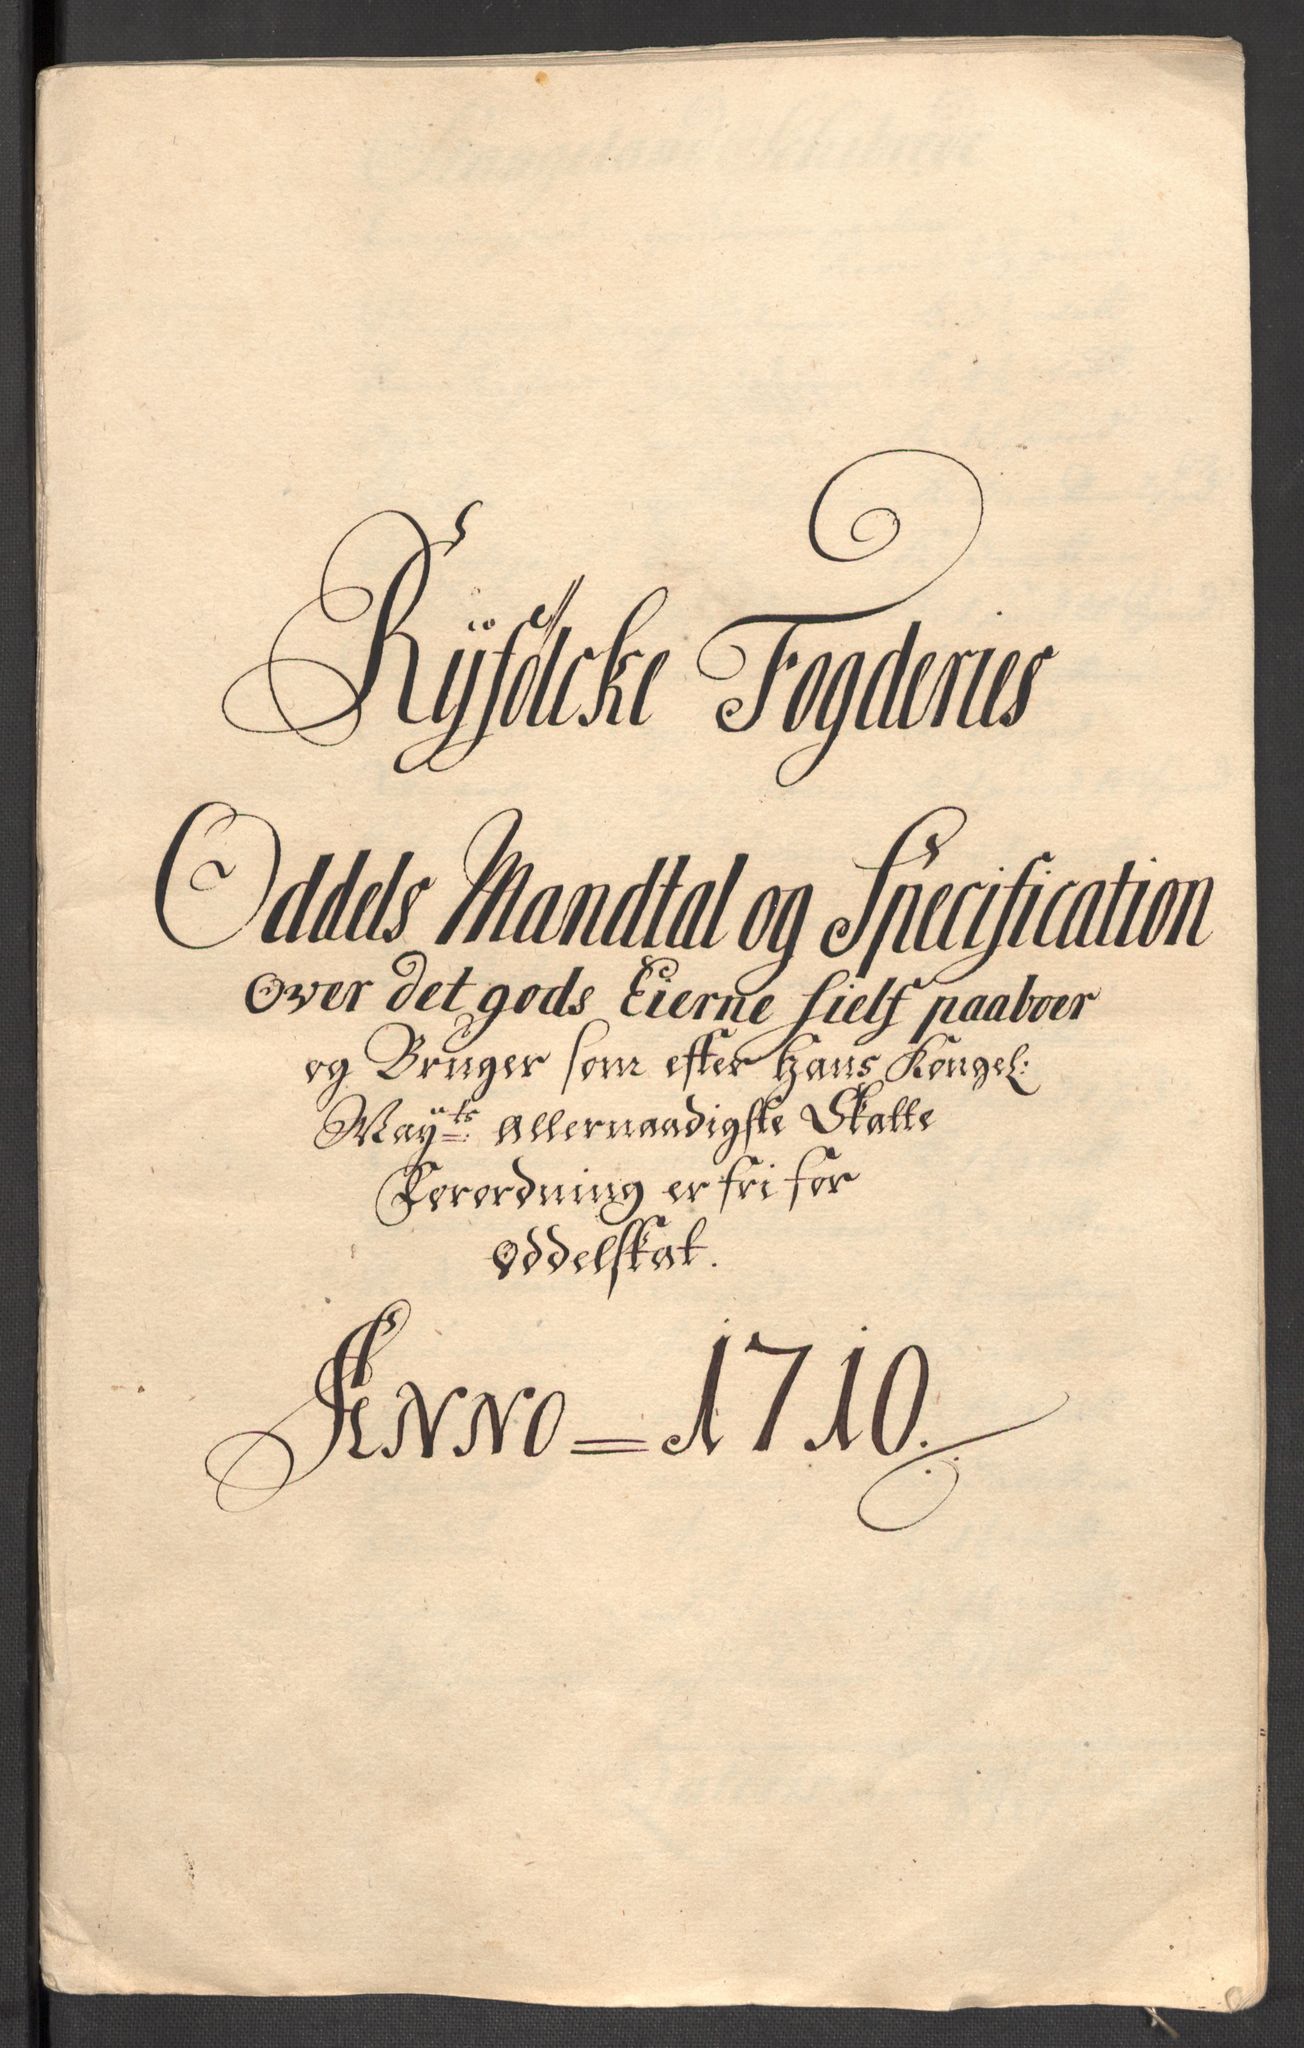 Ryfölcke Fogderies
Oddels Mandtal og Specification
over det gods Eierne sielf paaboer
og Bruger som efter Hans Kongel:
Mayts: allernaadigste Skatte
Forordning er fri for
oddelskat.
Anno = 1710.